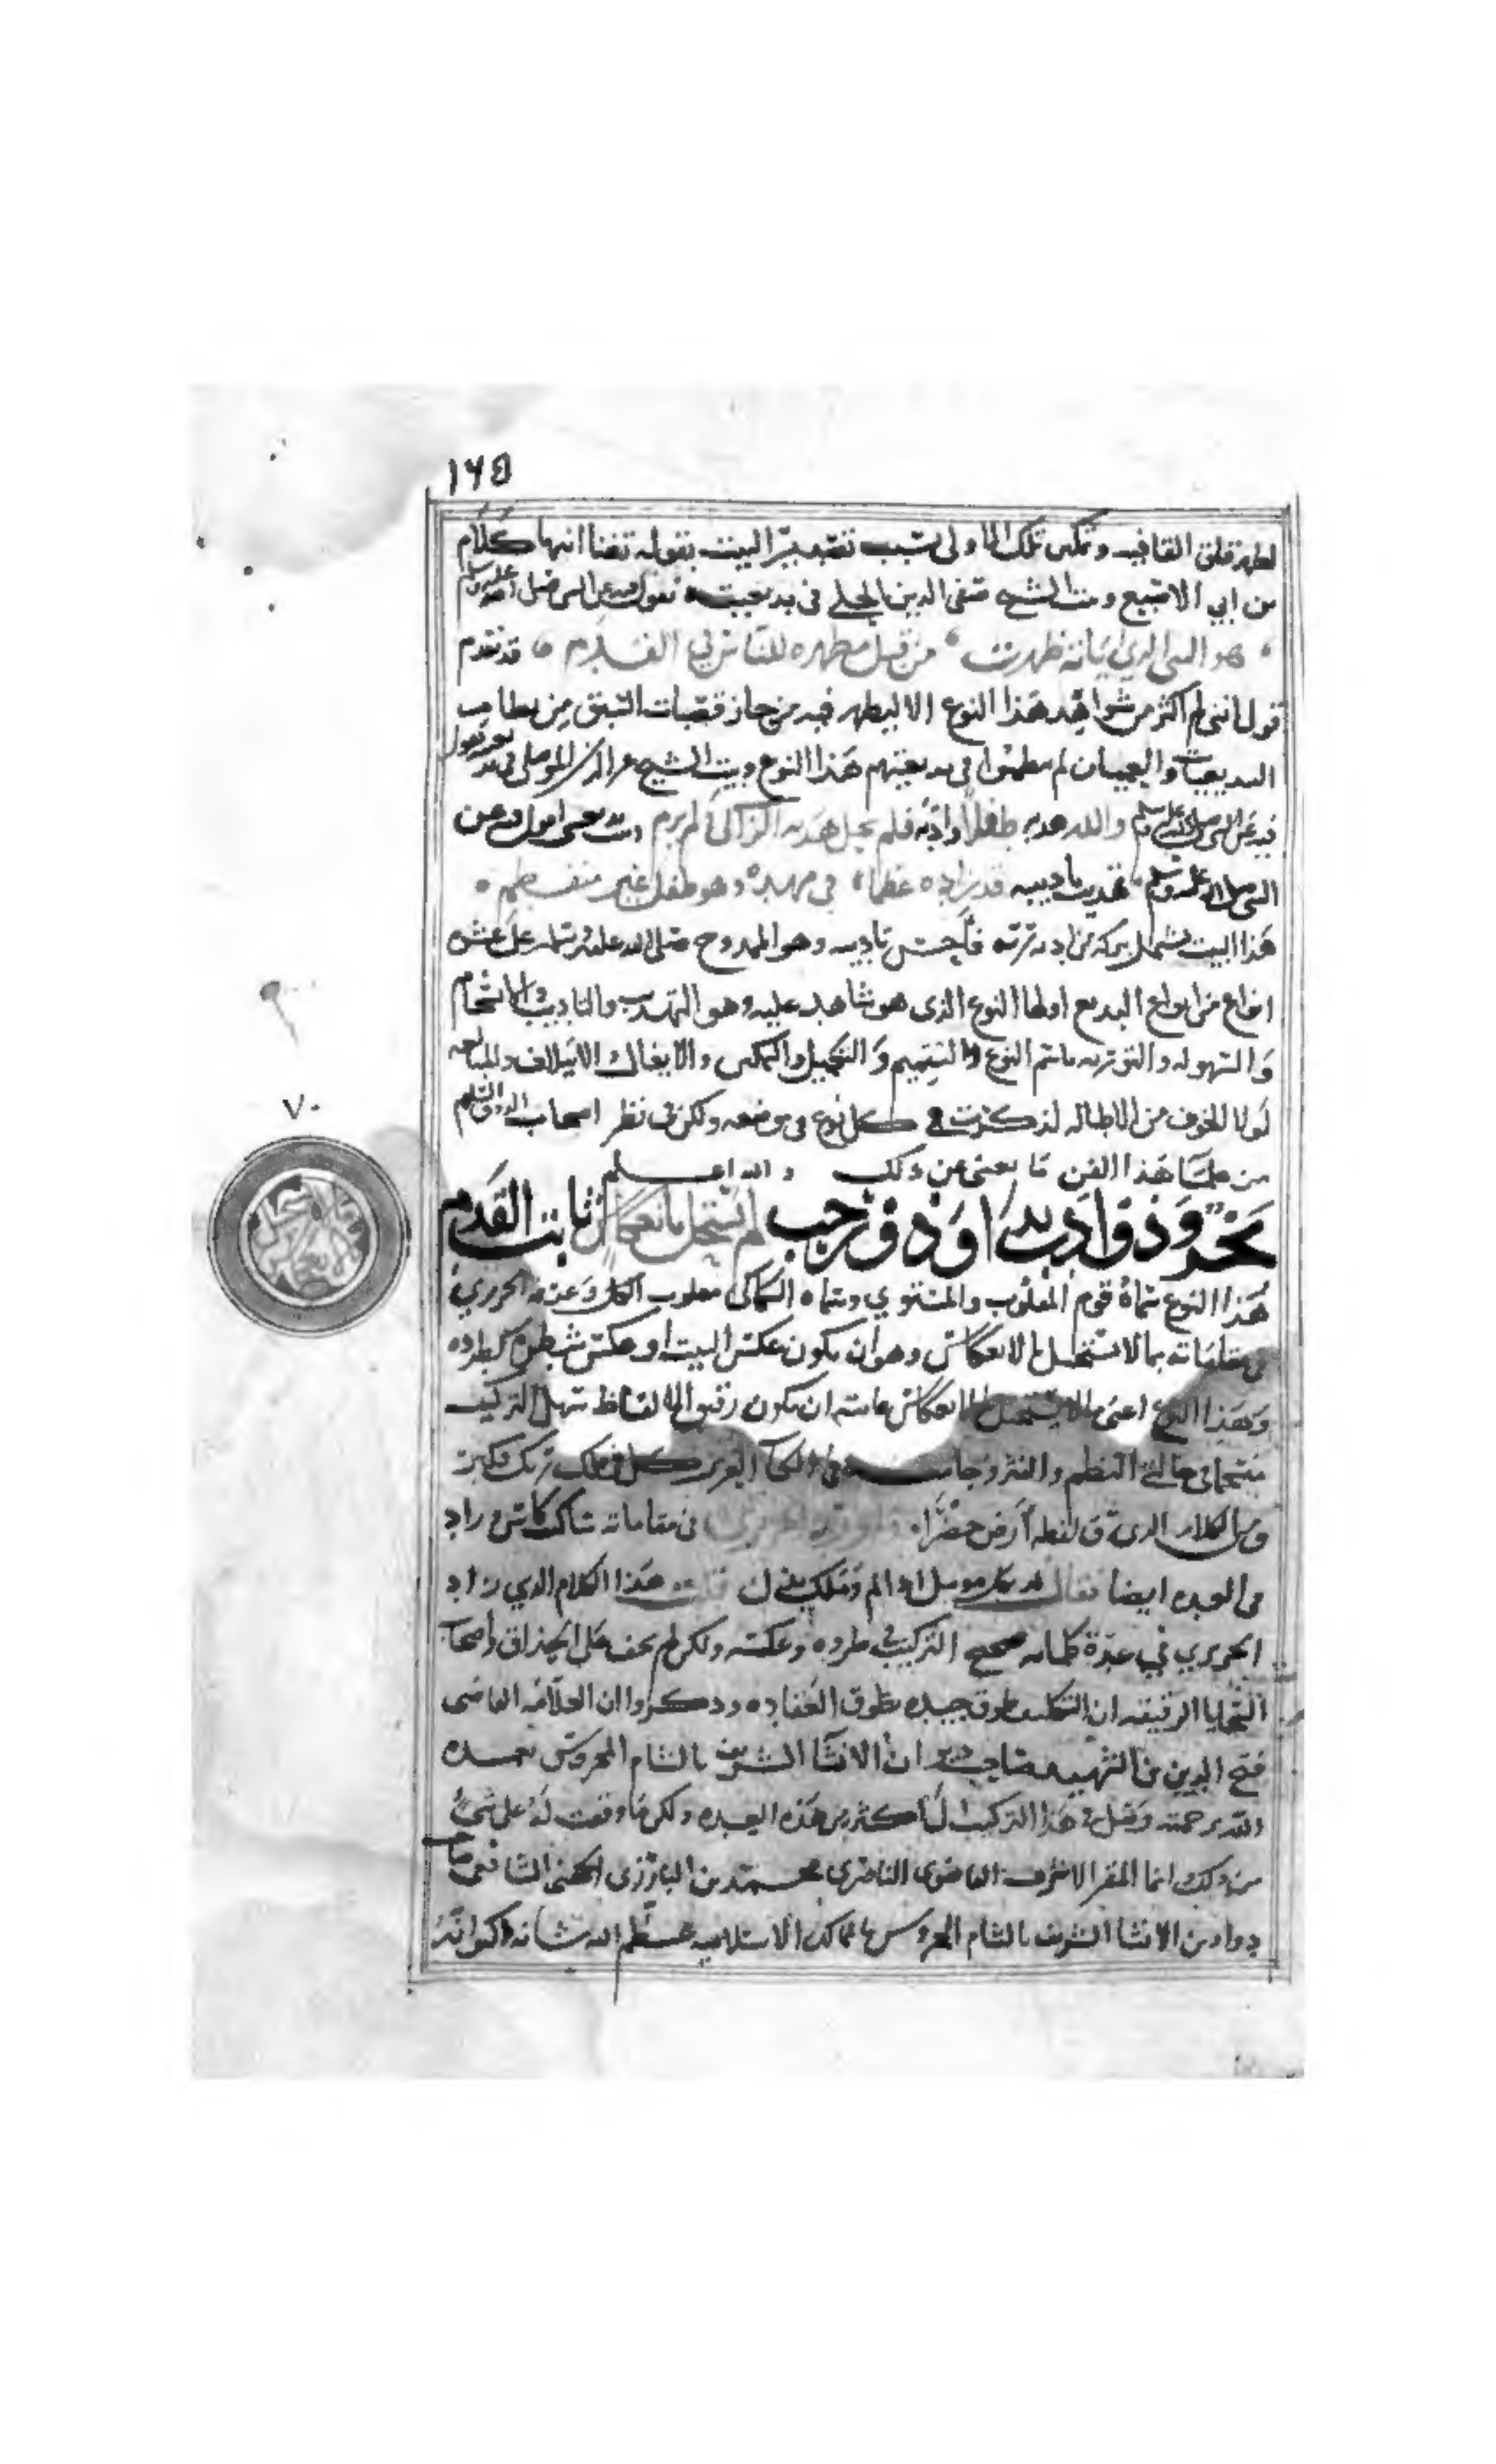 ١٦٥
لظهر قلق القافيه وتمكين تلك الاولى بسبب تصدير البيت بقوله قفنا انتهى كلام
بن ابي الاصبع وبيت الشيخ صفي الدين الحلي في بديعيته يقول فيه عن النبي صلى الله عليه وسلم
هو النبي الذي اياته ظهرت من قبل مظهره للناس في القدم قد تقدم
قولي انني لم اكثر من شواهد هذا النوع الا ليظهر فيه من حاز قصبات السبق من نظام
البديعيات والعميان لم ينظموا في بديعيتهم هذا النوع وبيت الشيخ عز الدين الموصلي في بديعيته يقول
فيه عن النبي صلى الله عليه وسلم والله هذبه طفلا وادبه فلم يحل هديه الزاكي ولم يرم وبيت بديعيتي اقول فيه عن
النبي صلى الله عليه وسلم تهذيب تاديبه قد زاده عظما في مهده وهو طفل غير منفطم
هذا البيت يشمل ببركة من ادبه ربه فاحسن تاديبه وهو الممدوح صلى الله عليه وسلم على عشرة
انواع من انواع البديع اولها النوع الذي هو شاهد عليه وهو التهذيب والتاديب والانسجام
والسهوله والتوريه باسم النوع والتتميم والتكميل والتمكين والايغال والايتلاف والمبالغه
لولا الخوف من الاطاله لذكرت كل نوع في موضعه ولكن في نظر اصحاب الذوق السليم
من علما هذا الفن ما يغني عن ذلك والله اعلم
بحر وذو ادب بدا وذو رحب لم يستحل بانعكاس ثابت القدم
هذا النوع سماه قوم المقلوب والمستوي وسماه السكاكي مقلوب الكل وعرفه الحريري
في مقاماته بما لا يستحيل بالانعكاس وهو ان يكون عكس البيت او عكس شطره كطرده
وهذا النوع اعني ما لا يستحيل بالانعكاس غايته ان يكون رقيق الالفاظ سهل التركيب
منسجما في حالتي النظم والنثر وجا منه في الكتاب العزيز كل في فلك ربك فكبر
ومن الكلام الذي رق لفظه ارض خضرا في مقاماته ساكب كاس وزاد
في العده ايضا فقال لم اخا مل كبر رجا اجر ربك قلت هذا الكلام الذي زاد
الحريري في عدة كلماته صحيح التركيب في طرده وعكسه ولكن لم يخف على الحذاق واصحاب
السجايا الرقيقه ان التكليف طوق جيده بطوق العقاده وذكروا ان العلامه القاضي
فتح الدين بن الشهيد صاحب ديوان الانشا الشريف بالشام المحروس تغمده
الله برحمته وصل في هذا التركيب الى اكثر من هذه العده ولكن ما وقفت له على شي
من ذلك انما المقر الاشرف القاضوي الناصري محمد بن البارزي الجهني الشافعي صاحب
دواوين الانشا الشريف بالشام المحروس بالممالك الاسلاميه عظم الله شانه ذكر انه
٧٠